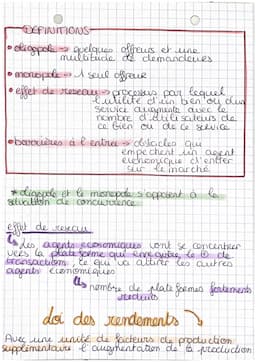 DEFINITIONS
• oligopole → quelques offreurs et une
multitude de demandeurs
• monopole → 1 seul offreur
• effet de reseau → processus par lequel
l'utilité d'un bien ou d'un
service augmente avec le
nombre d'utilisateurs de
ce bien ou de ce service
• barrières à l'entrée → obstacles qui
empêchent un agent
économique d'entrer
sur le marché
* oligopole et le monopole s'opposent à la
situation de concurrence
effet de reseau
↳ les agents économiques vont se concentrer
vers la plateforme qui enregistre le de
transactions, ce qui va attirer les autres
agents économiques
↳ nombre de plateformes fortements
réduites
loi des rendements
Avec une unité de facteurs de production
supplémentaire l'augmentation de la production